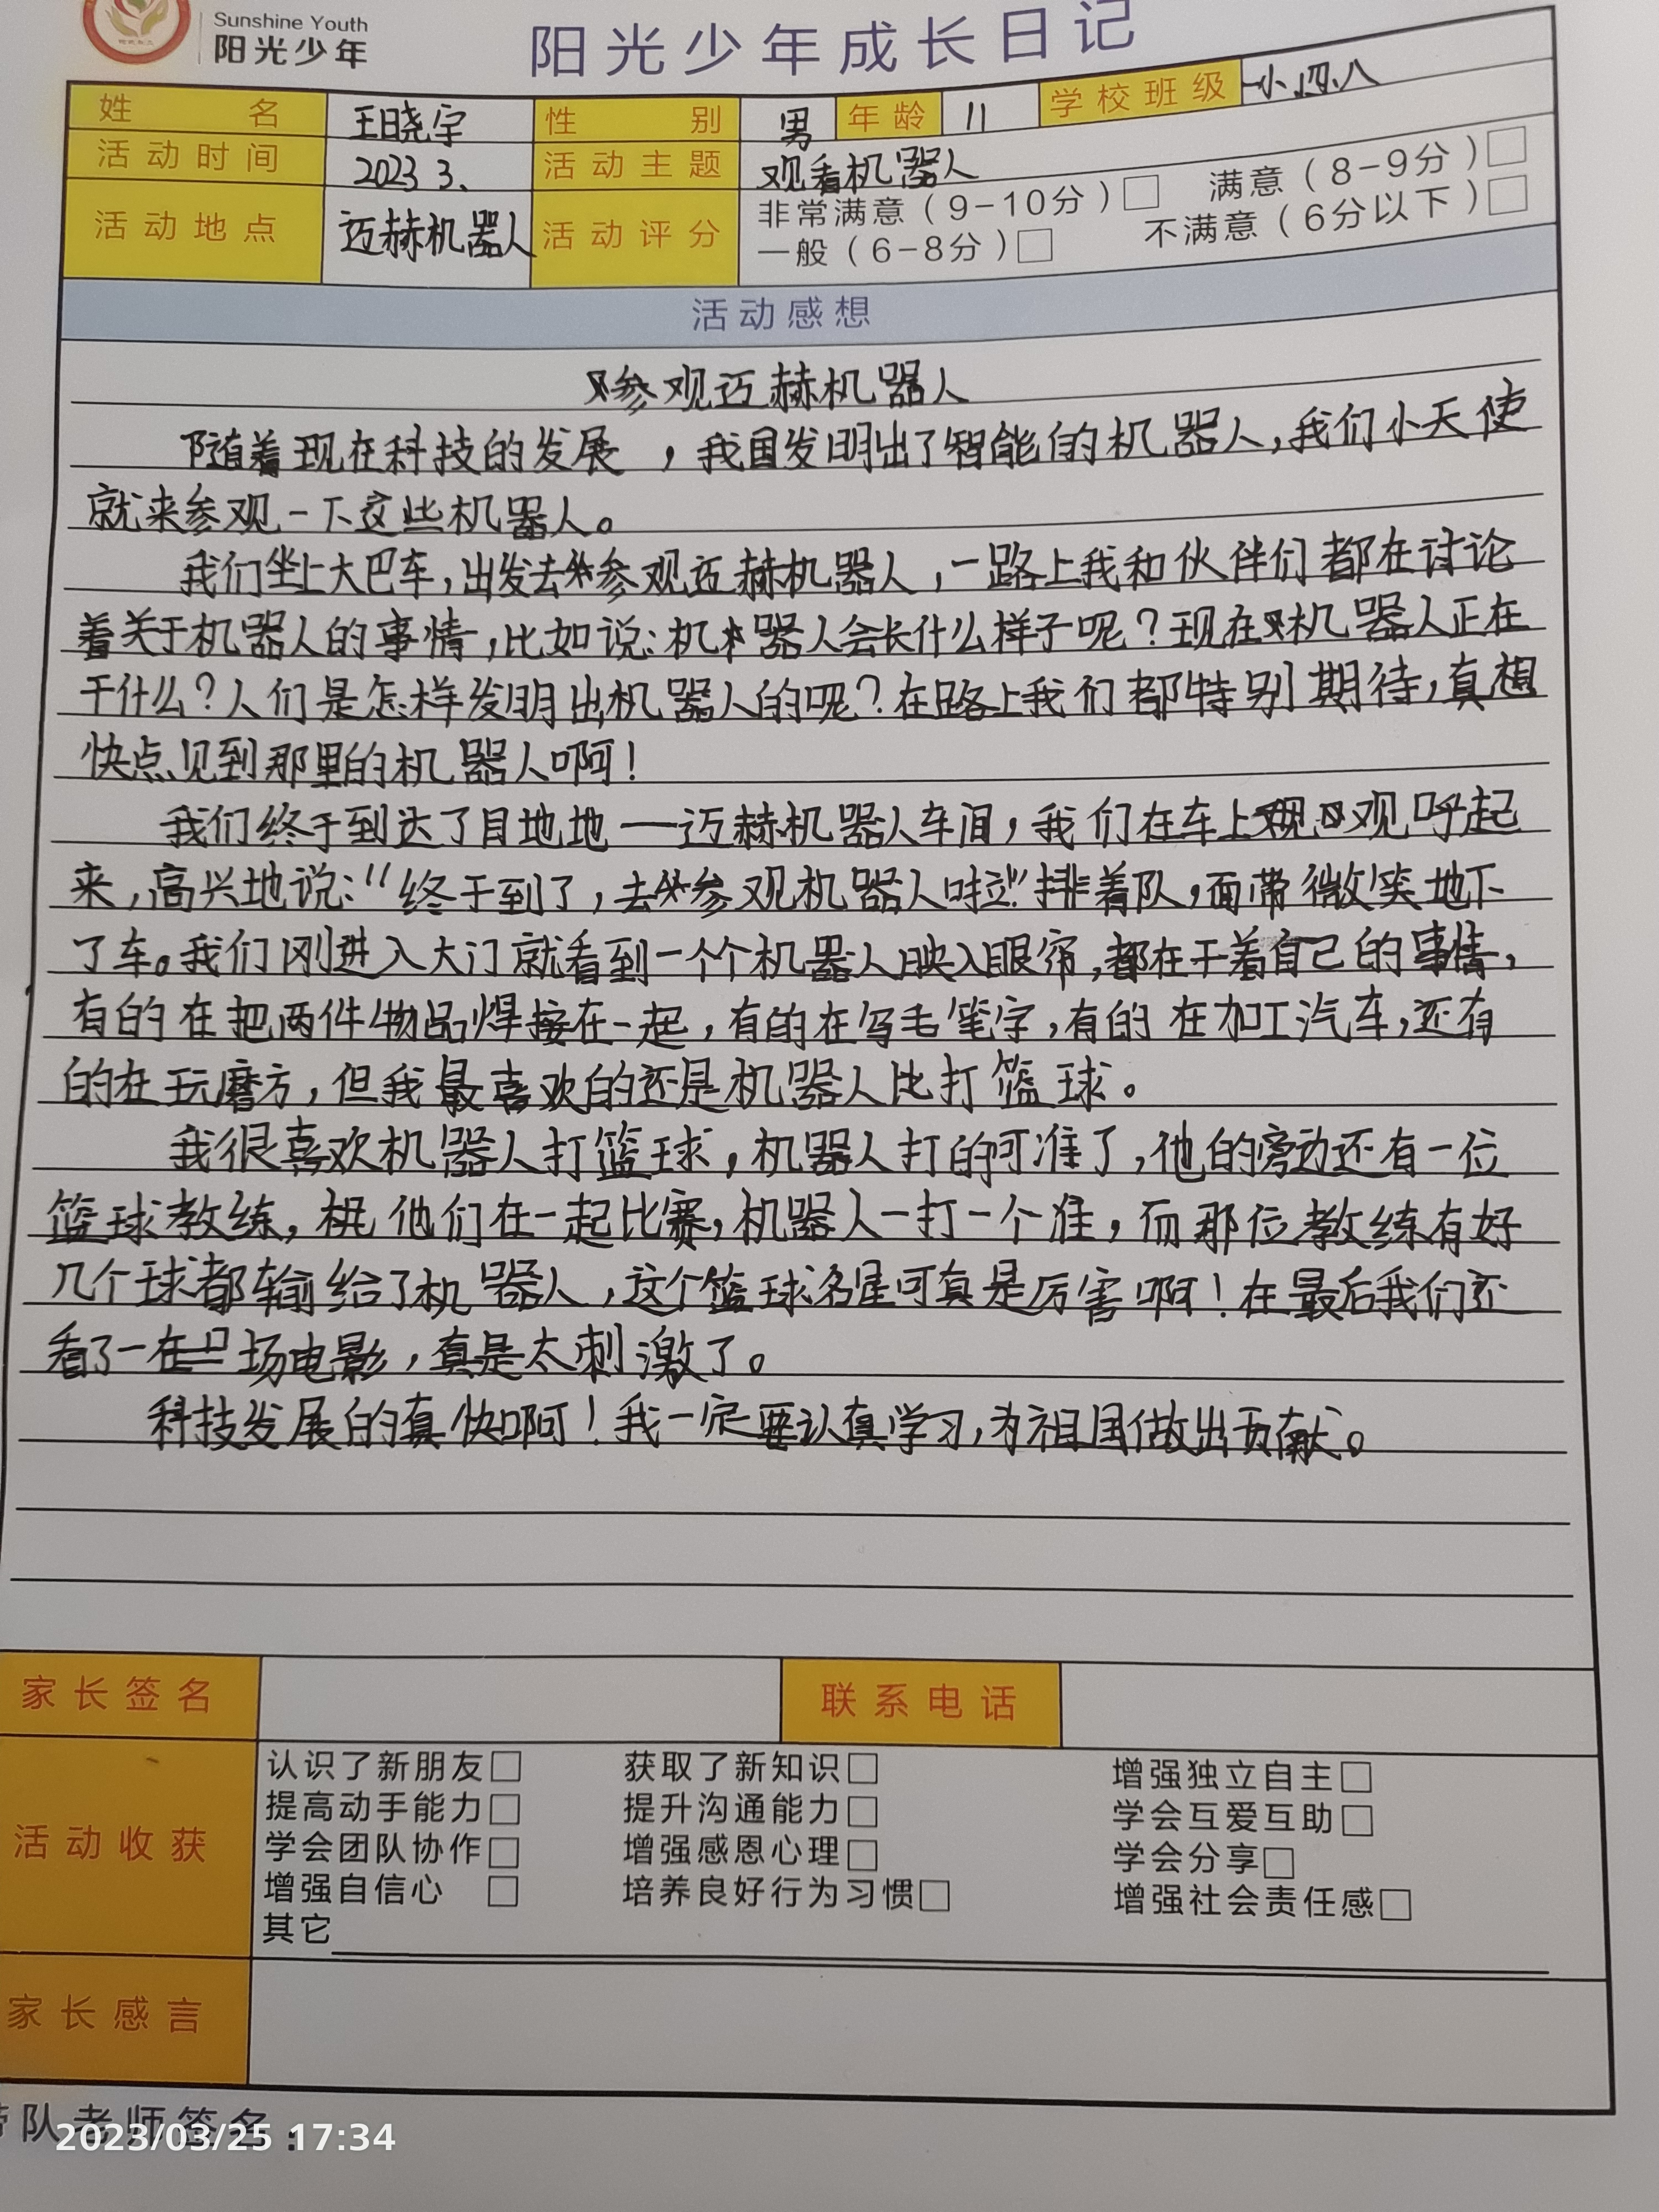 Sunshine Youth
阳光少年
阳光少年成长日记
姓名 王晓宇 性别 男 年龄 11 学校班级 一小四八
活动时间 2023 3. 活动主题 观看机器人
活动地点 迈赫机器人 活动评分 非常满意（9-10分）□ 满意（8-9分）□
一般（6-8分）□ 不满意（6分以下）□
活动感想
参观迈赫机器人
随着现在科技的发展，我国发明出了智能的机器人，我们小天使
就来参观一下这些机器人。
我们坐上大巴车，出发去参观迈赫机器人，一路上我和伙伴们都在讨论
着关于机器人的事情，比如说：机器人会长什么样子呢？现在机器人正在
干什么？人们是怎样发明出机器人的呢？在路上我们都特别期待，真想
快点见到那里的机器人啊！
我们终于到达了目地地——迈赫机器人车间，我们在车上观呼起
来，高兴地说：“终于到了，去参观机器人啦！”排着队，面带微笑地下
了车。我们刚进入大门就看到一个个机器人映入眼帘，都在干着自己的事情，
有的在把两件物品焊接在一起，有的在写毛笔字，有的在加工汽车，还有
的在玩磨方，但我最喜欢的还是机器人比打篮球。
我很喜欢机器人打篮球，机器人打的可准了，他的旁边还有一位
篮球教练，他们在一起比赛，机器人一打一个准，而那位教练有好
几个球都输给了机器人，这个篮球名星可真是厉害啊！在最后我们还
看了一场电影，真是太刺激了。
科技发展的真快啊！我一定要认真学习，为祖国做出贡献。
家长签名 联系电话
活动收获
认识了新朋友□ 获取了新知识□ 增强独立自主□
提高动手能力□ 提升沟通能力□ 学会互爱互助□
学会团队协作□ 增强感恩心理□ 学会分享□
增强自信心 □ 培养良好行为习惯□ 增强社会责任感□
其它
家长感言
带队老师签名：
2023/03/25 17:34